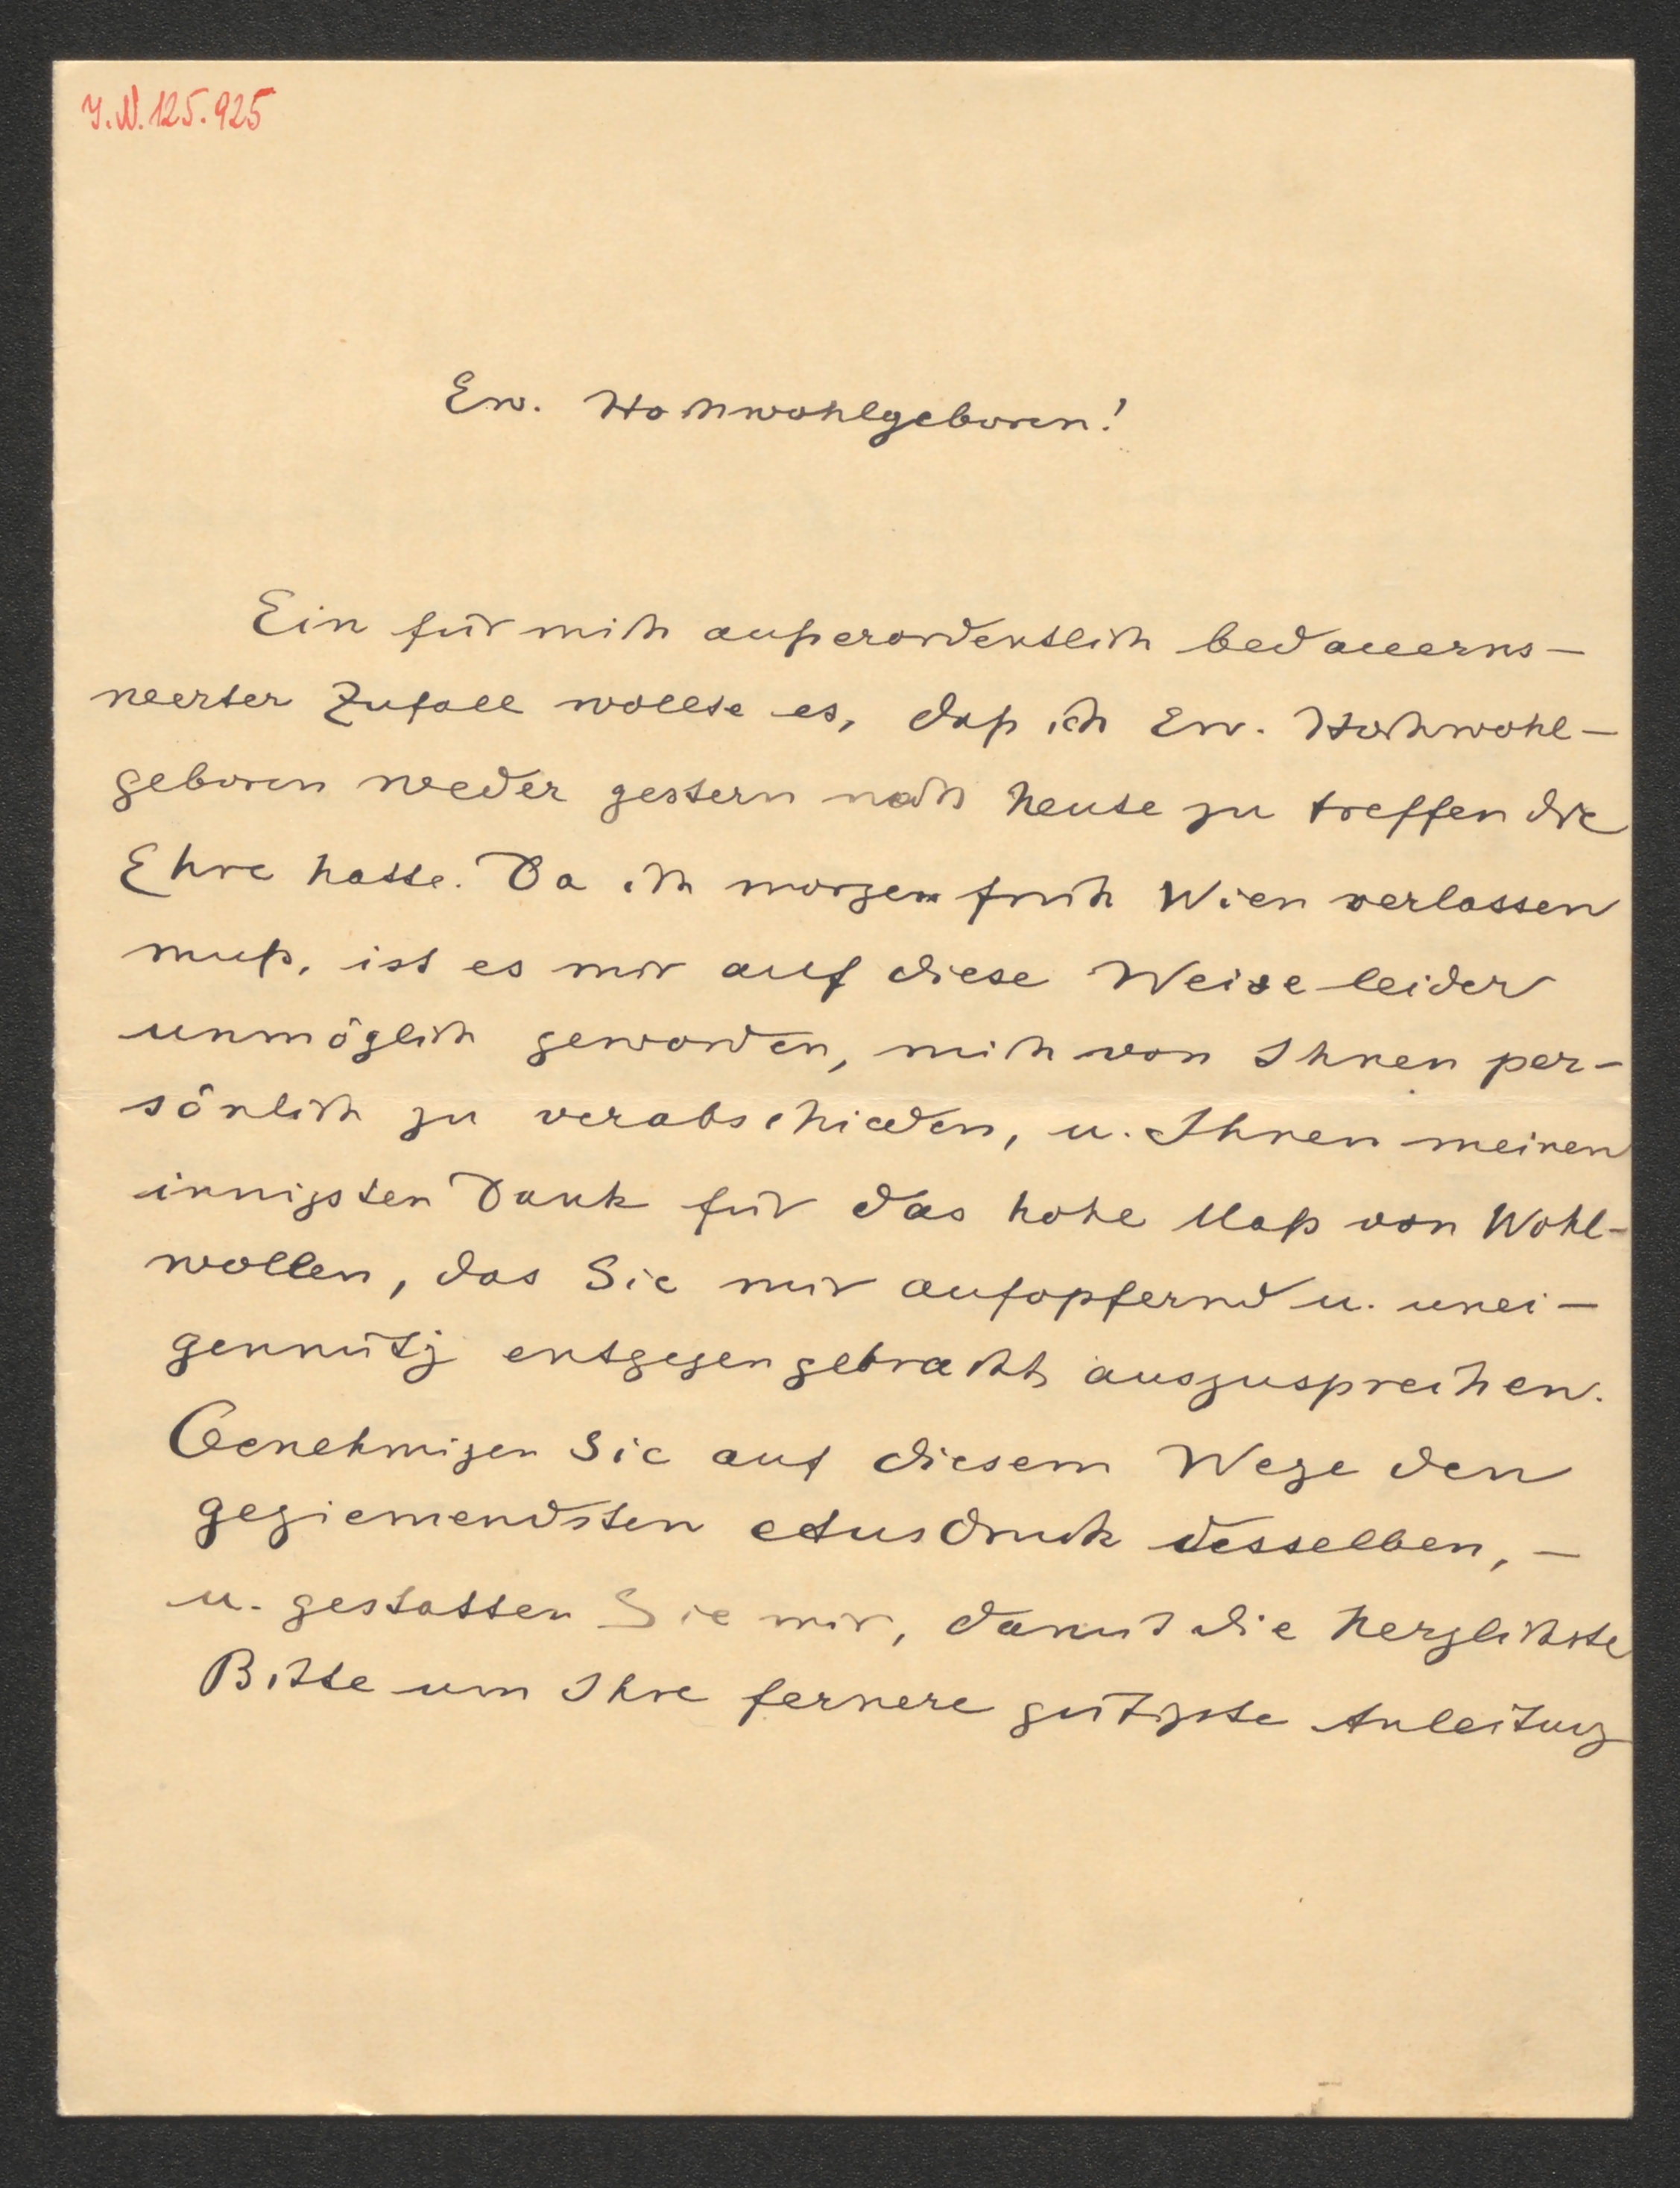 J.N. 125.925
Ew. Hochwohlgeboren!
Ein für mich außerordentlich bedauerns-
werter Zufall wollte es, daß ich Ew. Hochwohl-
geboren weder gestern noch heute zu treffen die
Ehre hatte. Da ich morgen früh Wien verlassen
muß, ist es mir auf diese Weise leider
unmöglich geworden, mich von Ihnen per-
sönlich zu verabschieden, u. Ihnen meinen
innigsten Dank für das hohe Maß von Wohl-
wollen, das Sie mir aufopfernd u. unei-
gennütz entgegengebracht, auszusprechen.
Genehmigen Sie auf diesem Wege den
geziemendsten Ausdruck desselben, -
u. gestatten Sie mir, damit die herzlichste
Bitte um Ihre fernere gütigste Anleitung